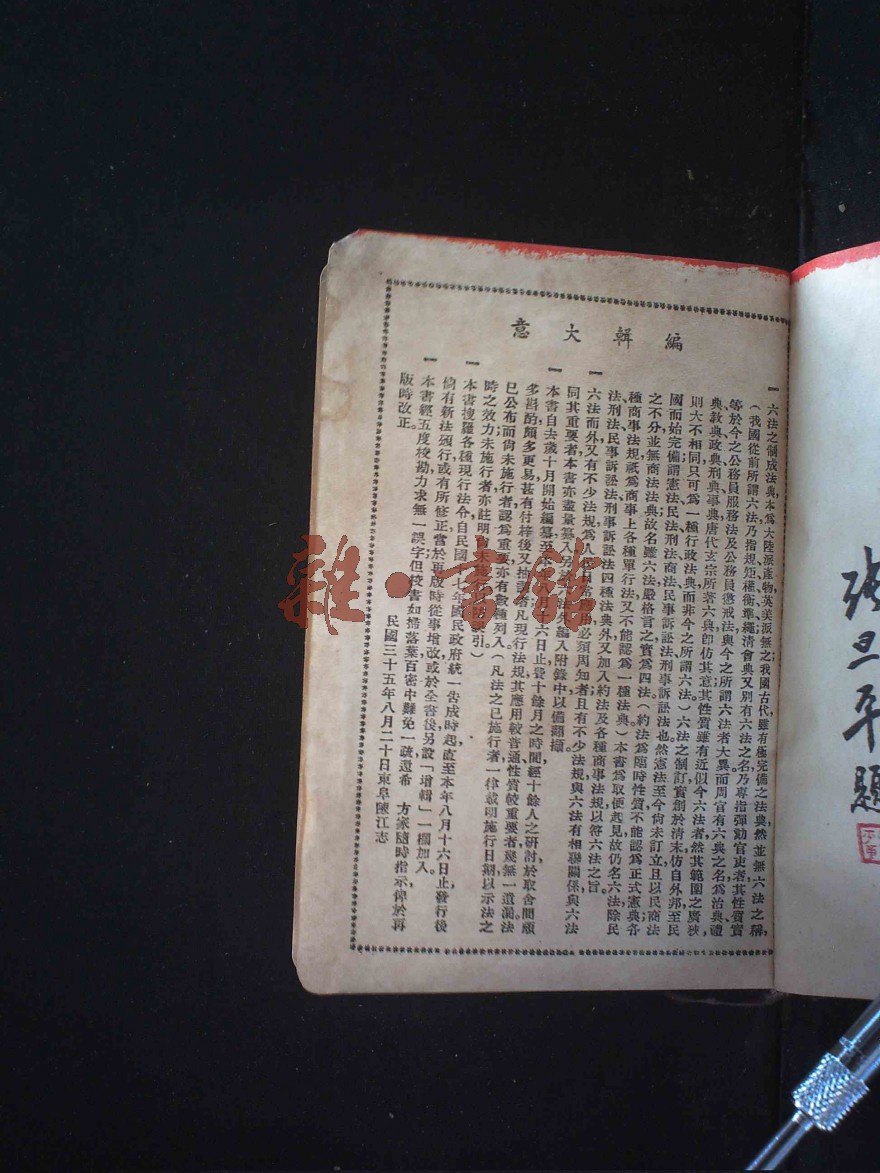 張旦平題
編輯大意
一 六法之制成法典,本為大陸派產物,英美派無之,我國古代雖有極完備之法典,然並無六法之稱,
(我國從前所謂六法,乃指規矩權衡準繩,清會典又別有六法之名,乃專指彈劾官吏者,其性質實
等於今之公務員服務法及公務員懲戒法,與今之所謂六法者大異,而周官有六典之名,為治典禮
典教典政典刑典事典,唐代玄宗所著六典,即仿其意,其性質雖有近似今六法者,然其範圍之廣狹,
則大不相同,只可為一種行政法典,而非今之所謂六法)六法之制訂,實創於清末,仿自外邦,至民
國而始完備,謂憲法民法刑法商法民事訴訟法刑事訴訟法也,然憲法至今尚未訂立,且以民商法
之不分,並無商法法典,故名雖六法,嚴格言之,實為四法,(約法為臨時性質,不能認為正式憲典,各
種商事法規,祇為商事上各種單行法,又不能認為一種法典)本書為取便起見,故仍名六法,除民
法刑法民事訴訟法刑事訴訟法四種法典外,又加入約法及各種商事法規,以符六法之旨。
一 六法而外,又有不少法規,為人民日常應用必須周知者,且有不少法規,與六法有相聯關係,與六法
同其重要者,本書亦盡量纂入,另於六法外,編入附錄中,以備翻擷。
一 本書自去歲十月開始編纂,至本年八月十六日止,費十餘月之時間,經十餘人之研討,於取舍間頗
多斟酌,頗多更易,甚有付梓後又抽調者,凡現行法規,其應用較普通,性質較重要者,殆無一遺漏,法
已公布而尚未施行者,認為重要,亦有數種列入,(凡法之已施行者,一律載明施行日期,以示法之
時之效力,未施行者,亦註明尚未施行,以防誤引)
一 本書搜羅各種現行法令,自民國十七年國民政府統一告成時起,直至本年八月十六日止,發行後
倘有新法頒行,或有所修正,當於再版時從事增改,或於全書後另設「增輯」一欄加入。
一 本書經五度校勘,力求無一誤字,但校書如掃落葉,百密中難免一疏,還希 方家隨時指示,俾於再
版時改正。
民國三十五年八月二十日東阜陳江志
雜·書館